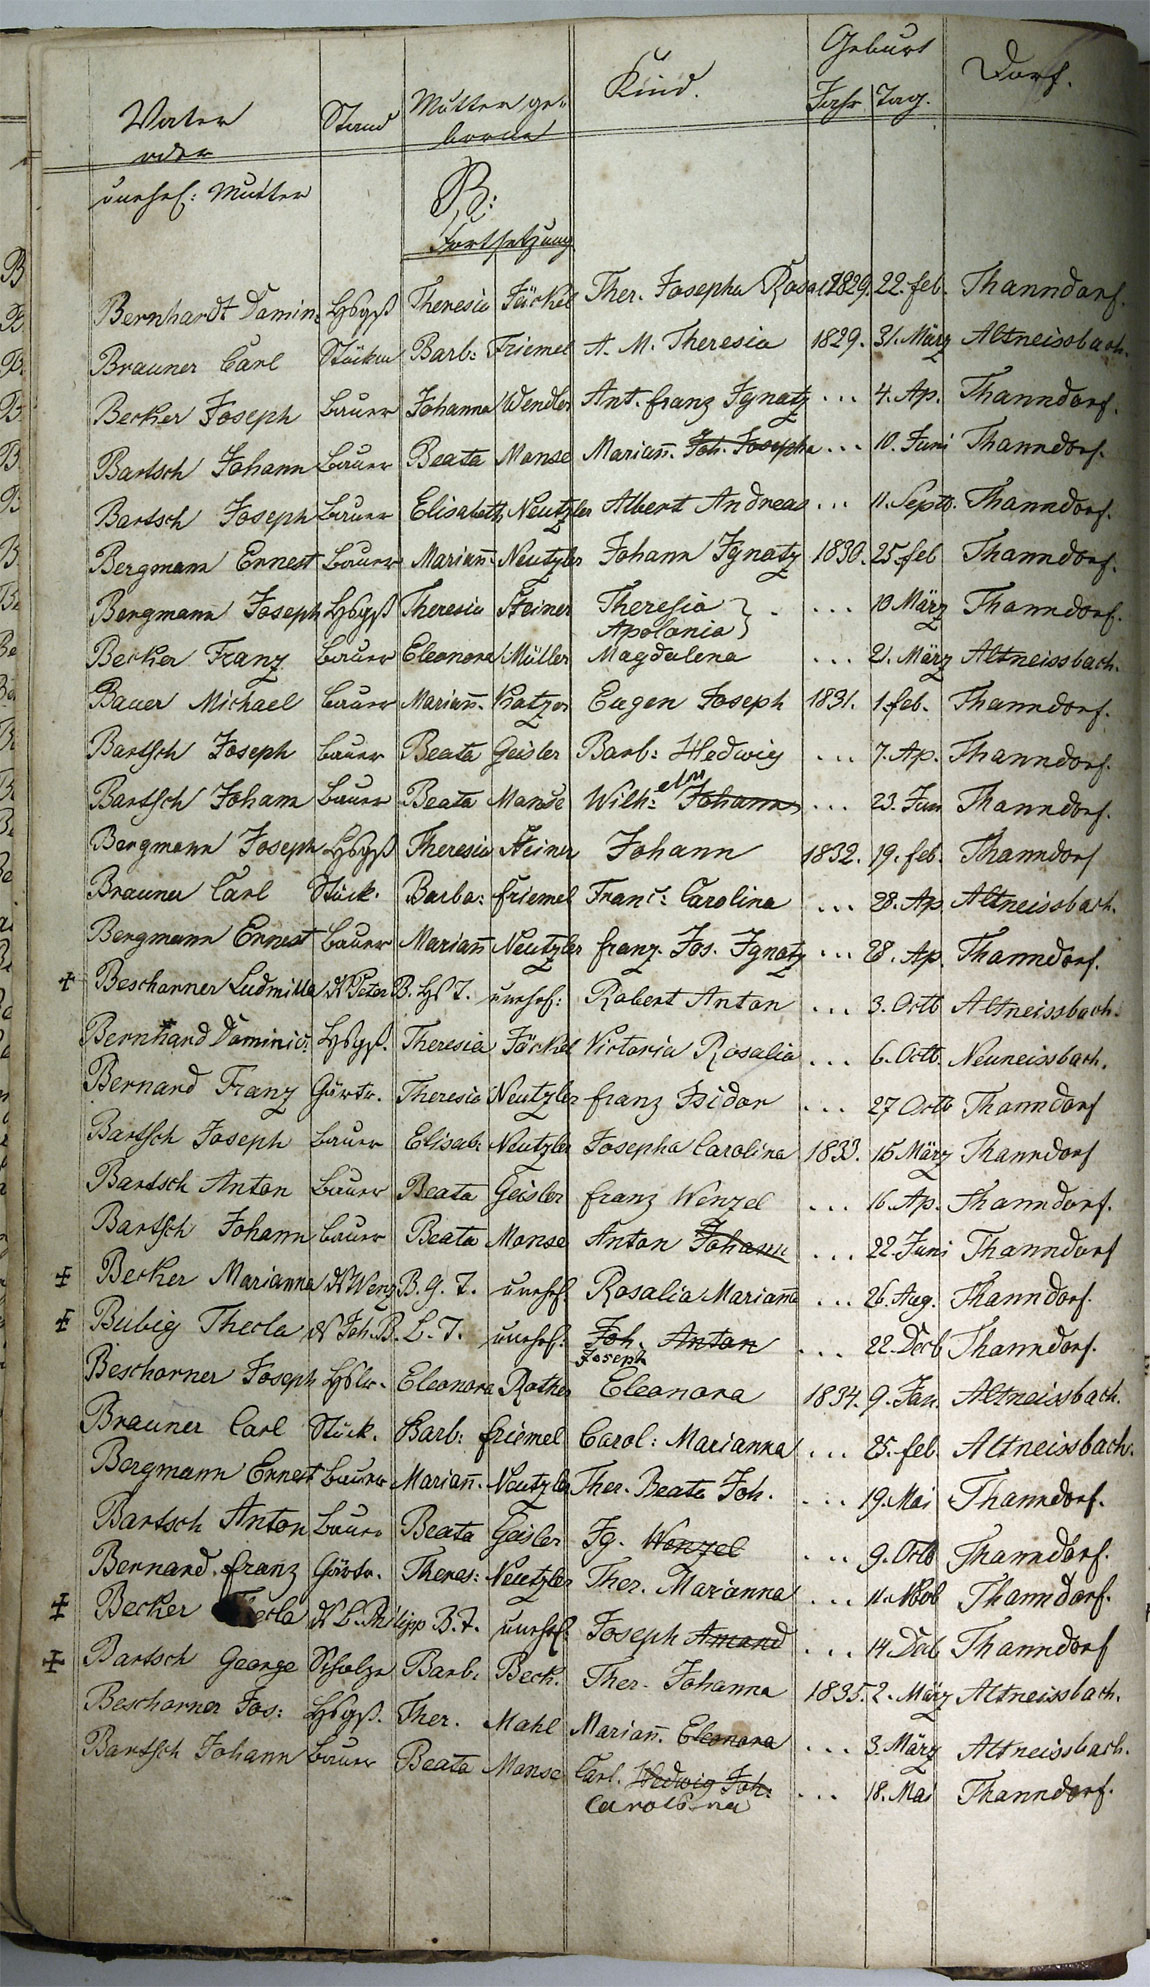 Vater oder unehel: Mutter Stand Mutter geborne Kind. Geburt Jahr Tag. Dorf.
B:
Fortsetzung
Bernhardt Domin: Hsgß Theresia Jäckel Ther. Josepha Rosal 1829. 22. feb. Thanndorf.
Brauner Carl Stückm Barb: Friemel A. M. Theresia 1829. 31. März Altneissbach.
Becker Joseph Bauer Johanna Wendler Ant. franz Ignatz ... 4. Ap. Thanndorf.
Bartsch Johann Bauer Beata Manse Mariañ. Joh. Josepha ... 10. Juni Thanndorf.
Bartsch Joseph Bauer Elisabeth Neutzler Albert Andreas ... 11. Septb. Thanndorf.
Bergmann Ernest Bauer Mariañ. Neutzler Johann Ignatz 1830. 25. feb Thanndorf.
Bergmann Joseph Hsgß Theresia Steiner Theresia } . ... 10 März Thanndorf.
Apolonia
Becker Franz Bauer Eleonora Müller Magdalena ... 21. März Altneissbach.
Bauer Michael Bauer Mariañ. Katzer Eugen Joseph 1831. 1. feb. Thanndorf.
Bartsch Joseph Bauer Beata Geisler Barb: Hedwig ... 7. Ap. Thanndorf.
Bartsch Johann Bauer Beata Manse Wilh: elm Johanna ... 23. Jun Thanndorf.
Bergmann Joseph Hsgß Theresia Steiner Johann 1832. 19. feb. Thanndorf
Brauner Carl Stück. Barba: friemel Franc: Carolina ... 28. Ap Altneissbach.
Bergmann Ernest Bauer Mariañ Neutzler franz. Jos. Ignatz ... 28. Ap. Thanndorf.
Beschorner Ludmilla d Peter B. Hs T. unehel: Robert Anton ... 3. Octb Altneissbach.
Bernhard Dominic: Hsgß. Theresia Jäckel Victoria Rosalia ... 6. Octb. Neuneissbach.
Bernard Franz Gärtr. Theresia Neutzler franz Isidor ... 27 Octb Thanndorf
Bartsch Joseph Bauer Elisab: Neutzler Josepha Carolina 1833. 15 März Thanndorf
Bartsch Anton Bauer Beata Geisler franz Wenzel ... 16. Ap. Thanndorf.
Bartsch Johann Bauer Beata Manse Anton Johann ... 22. Juni Thanndorf
Becker Marianna d Wenz B. G. T. unehel. Rosalia Mariaña ... 26. Aug. Thanndorf.
Bubig Thecla d Joh. B. L. T. unehel: Joh. Anton ... 22. Decb Thanndorf.
Joseph
Beschorner Joseph Hslr. Eleonora Rother Eleonora 1834. 9. Jan. Altneissbach.
Brauner Carl Stück. Barb: friemel Carol: Marianna ... 25. feb. Altneissbach.
Bergmann Ernest Bauer Mariañ. Neutzler Ther. Beata Joh. ... 19. Mai Thanndorf.
Bartsch Anton Bauer Beata Geisler Ig. Wenzel ... 9. Octb Thanndorf.
Bernard. franz Gärtr. Theres: Neutzler Ther. Marianna ... 11. Nob Thanndorf.
Becker d L. Philipp B. T. unehel. Joseph Amand ... 14. Decb Thanndorf
Bartsch George Scholze Barb: Beck. Ther. Johanna 1835. 2. März Altneissbach.
Beschorner Jos: Hsgß. Ther. Mahl Mariañ. Eleonora ... 3. März Altneissbach.
Bartsch Johann Bauer Beata Manse Carl. Hedwig Joh: ... 18. Mai Thanndorf.
Carolina